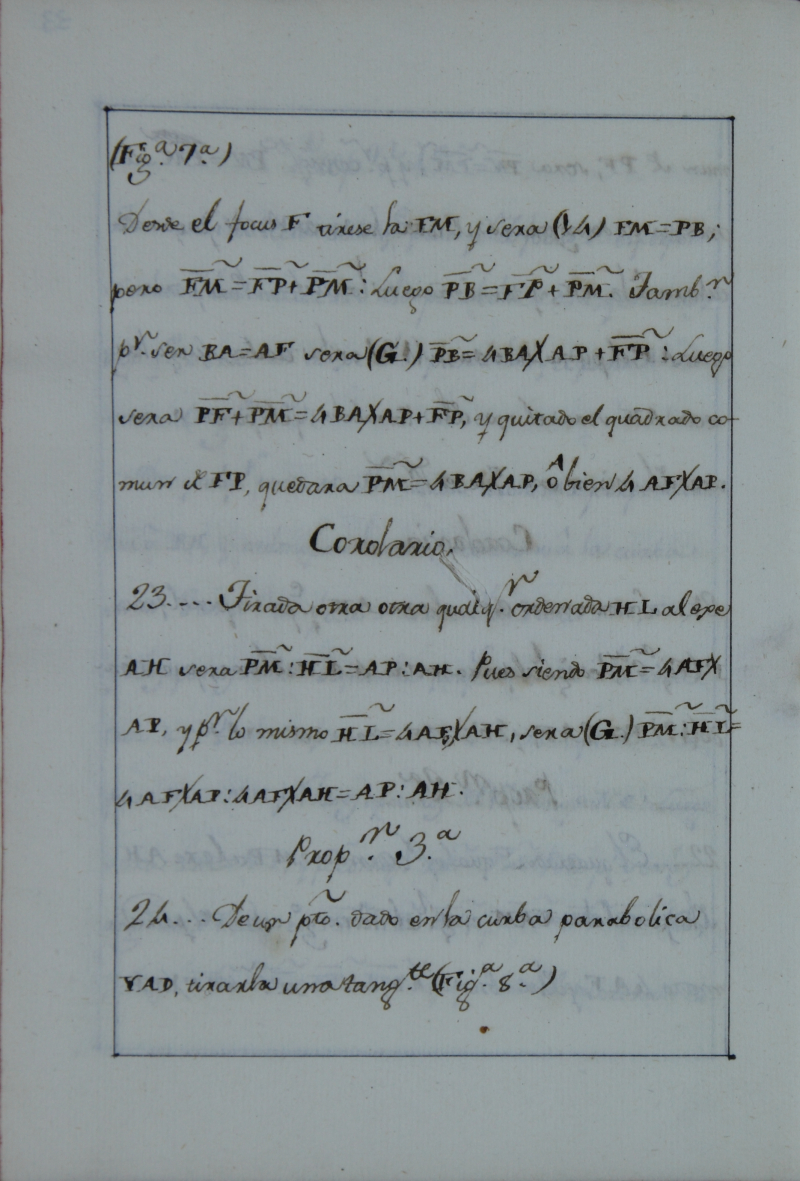 (Fig.ª 7.ª)
Desde el focus F tirese la FM, y sera (14) FM=PB;
pero F͞M̃=F͞P̃+P͞M̃: Luego P͞B̃=F͞P̃+P͞M̃. Tamb.n
p.r ser BA=AF sera (G.) P͞B̃=4BA╳AP+F͞P̃: Luego
sera P͞F̃+P͞M̃=4BA╳AP+F͞P̃, y quitado el quadrado co-
mun d FP, quedara P͞M̃=4BA╳AP, ô bien 4AF╳AP.
Corolario.
23.... Tirada otra otra qualq.r ordenada HL al exe
AH sera P͞M̃:H͞L̃=AP:AH. Pues siendo P͞M̃=4AF╳
AP, y p.r lo mismo H͞L̃=4AF╳AH, sera (G.) P͞M̃:H͞L̃=
4AF╳AP:4AF╳AH=AP:AH.
Prop.n 3.ª
24... De un pto. dado en la curba parabolica
YAD, tirarla una tang.te (Fig.ª 8.ª)